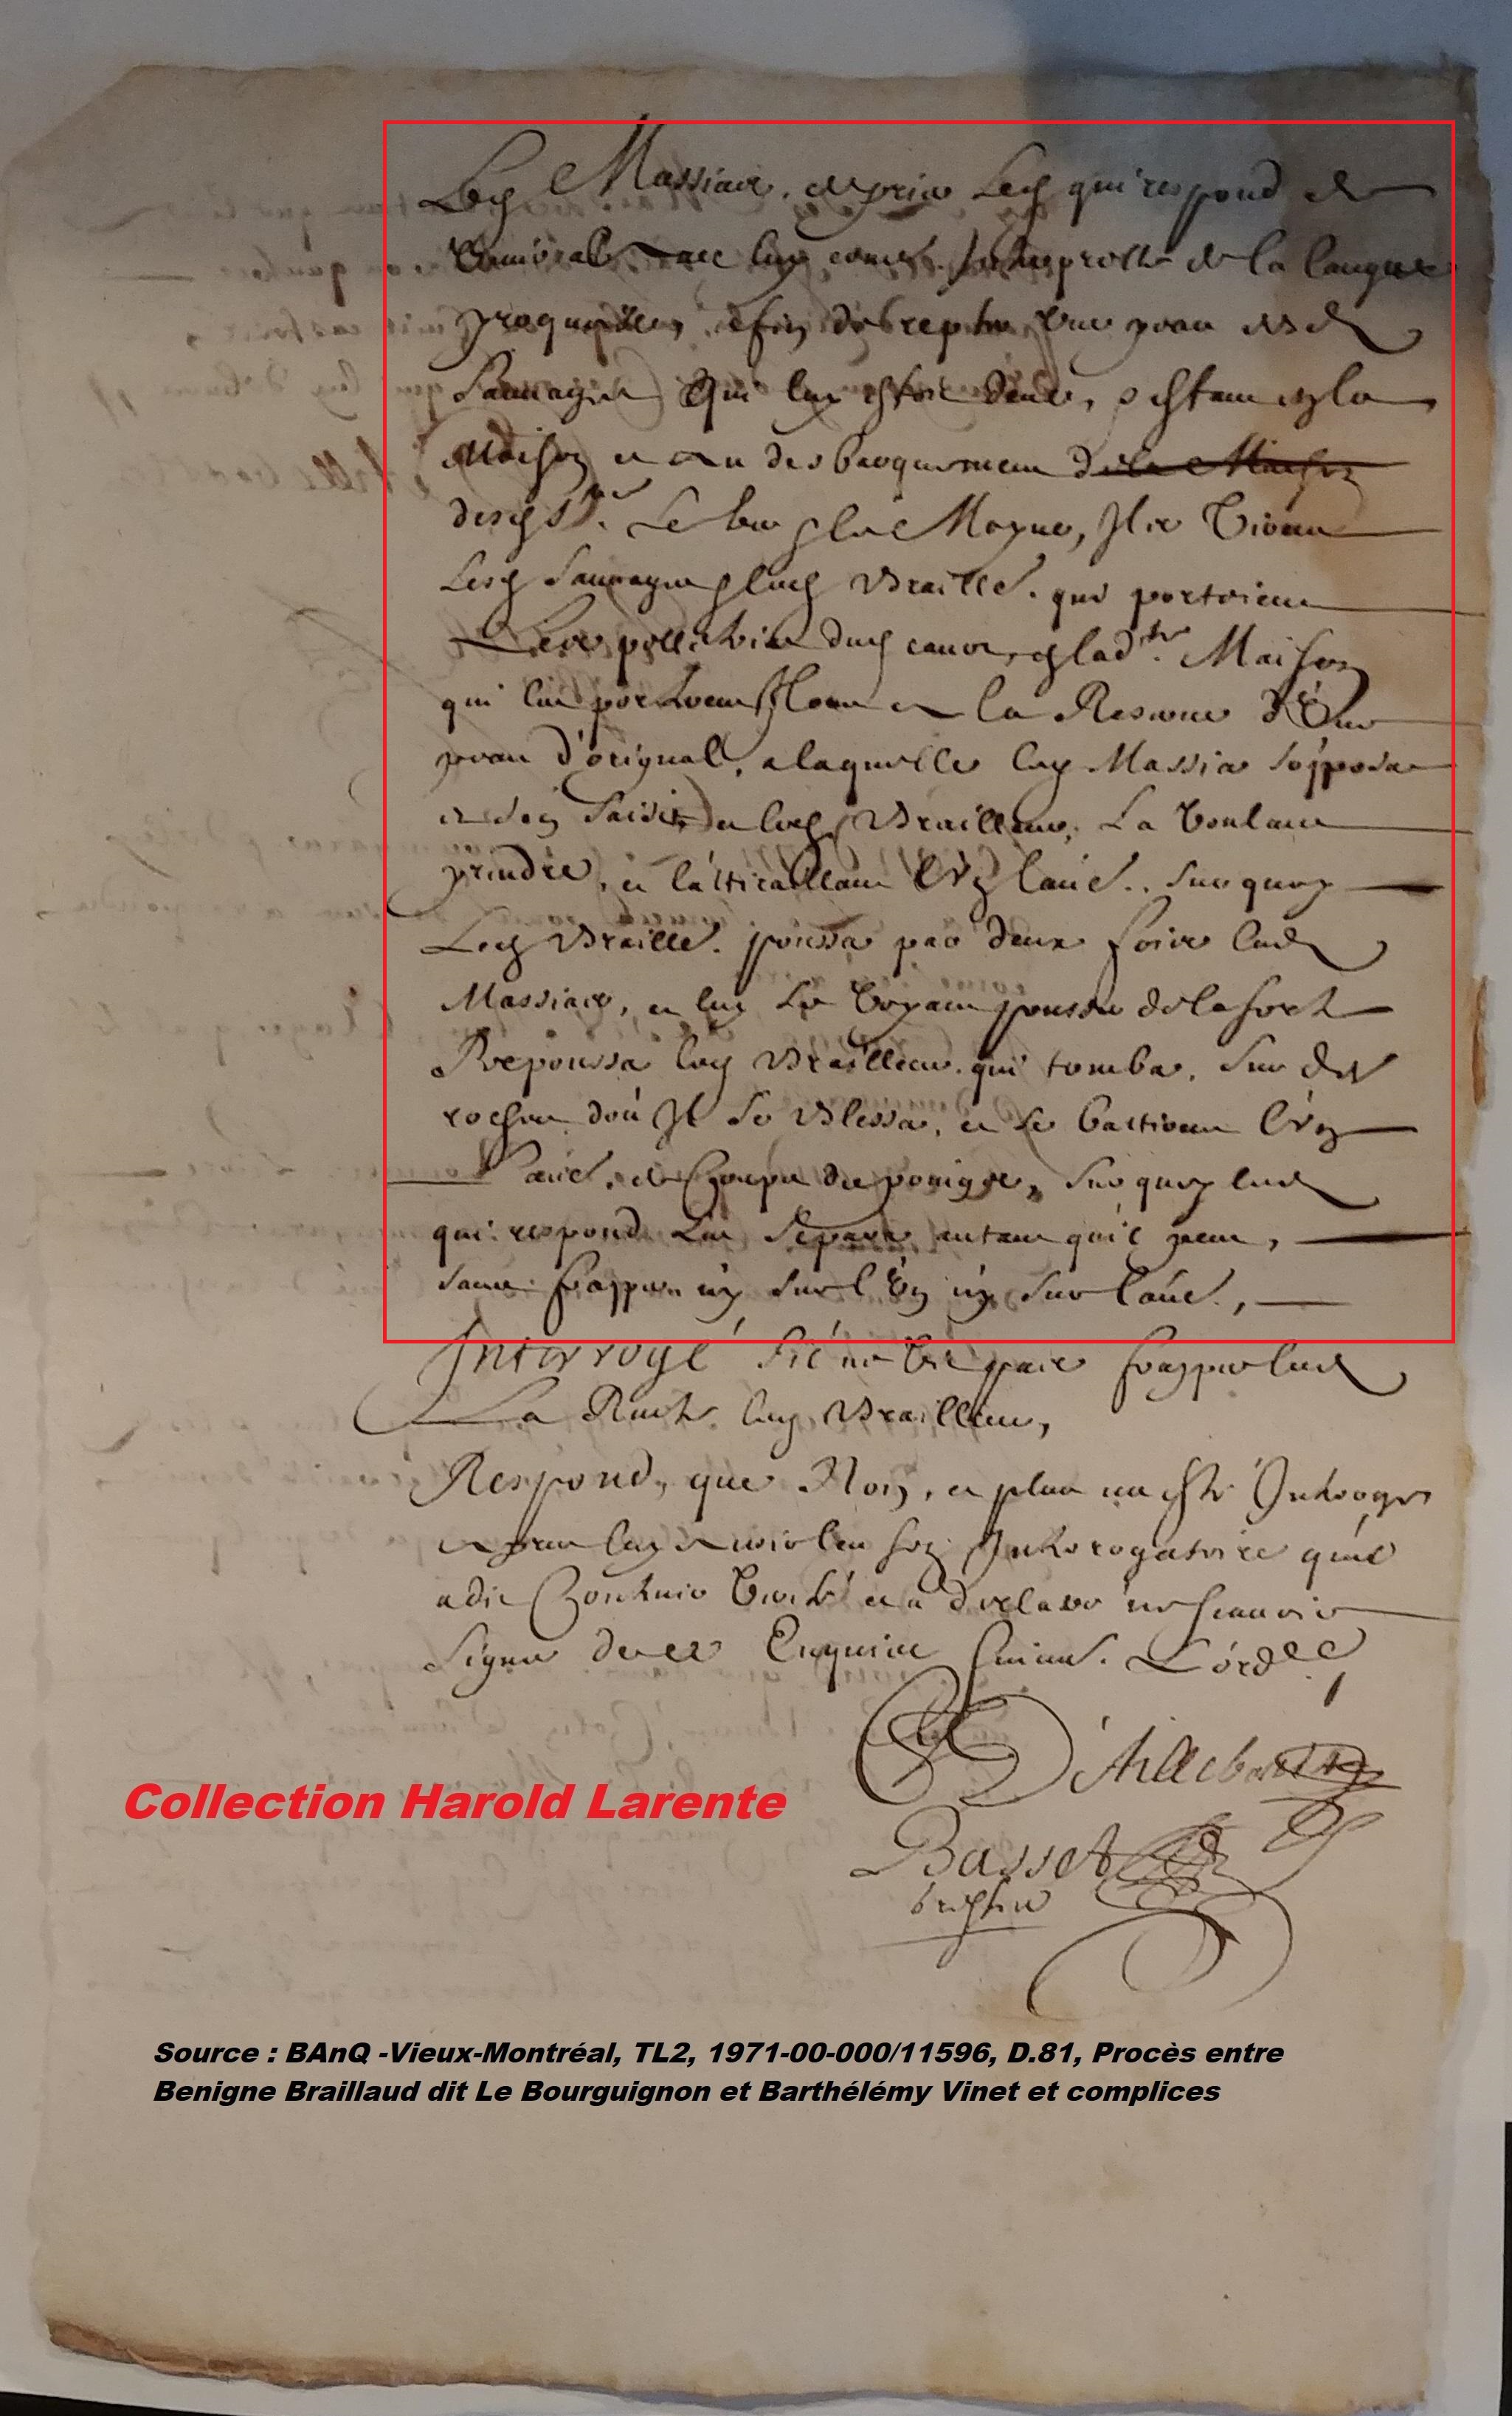 Led Massiar. et pria led qui respond de
venir avec luy comme Interprette de la langue
yroquoise, afin de repter une peau desd
Sauvages qui luy estoit deue, & estant en la
Maison et au desbarquement de la Maison
desd Srs. Le ber & le Moyne, Ils virent
Lesd Sauvages & led Braille. qui portoient
Leurs pelletries dud canot, en lad.te Maison
qui lui portoient Ilors la Rescoue d'Une
peau d'orignal, a laquelle luy Massia s'opposa
et s'en saisit, et led Brailleau, La Voulant
prendre, et la ttiraillant l'Un l'auẽ. sur quoy
Led Braille. poussa par deux fois led
Massiar, et luy se Voyant poussé de la sorte
Repoussa led Brailleau. qui tomba. sur des
roches d'où Il se Blessa, et se battirent l'Un
l'auẽ. de Coups de poings, sur quoy led
qui respond Les Separa autant qu'il peut,
sans frapper ny sur l'Un ny sur l'auẽ.,
Interrogé s'il ne Vit pas frapper led
La Ruche led Brailleau,
Respond, que Non, et plus na esté Interrogé
et apres luy avoir leu son Interrogatoire qu'il
a dit Contenir Verité et a declaré ne scavoir
signer de ce Enquis suivant. L'ordce
D'Ailleboust
Basset
greffier
Collection Harold Larente
Source : BAnQ -Vieux-Montréal, TL2, 1971-00-000/11596, D.81, Procès entre
Benigne Braillaud dit Le Bourguignon et Barthélémy Vinet et complices